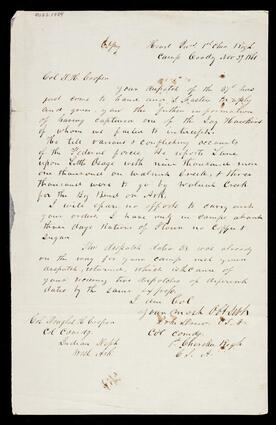 Copy
Head Qrs 1st Cher Regt
Camp Coody Nov 27, 1861
Col
Your dispatch of the
just come to hand and I hasten to reply
and give you the information
of having captured one of the Jay Hawkers
of whom we
He tell various & conflicting accounts
of the Federal forces. He reports Lane
upon Little Osage with nine thousand men
one thousand on Walnut Creek, & three
thousand were to go by Walnut Creek
for the Big Bend on Ark.
I will spare no efforts to carry out
your orders. I have only in camp about
three days rations of flour no Coffee &
Sugar.
The dispatch was already
on the way for your camp
dispatch, returned, which
your receiving two dispatches of different
dates by the same express.
I am Col
Your Most Obt Svt
John Drew
Col Comdg
1st Cherokee Regt
C. S. A.
Col Douglas H. Cooper
Col Comdg
Indian Dept
West Ark